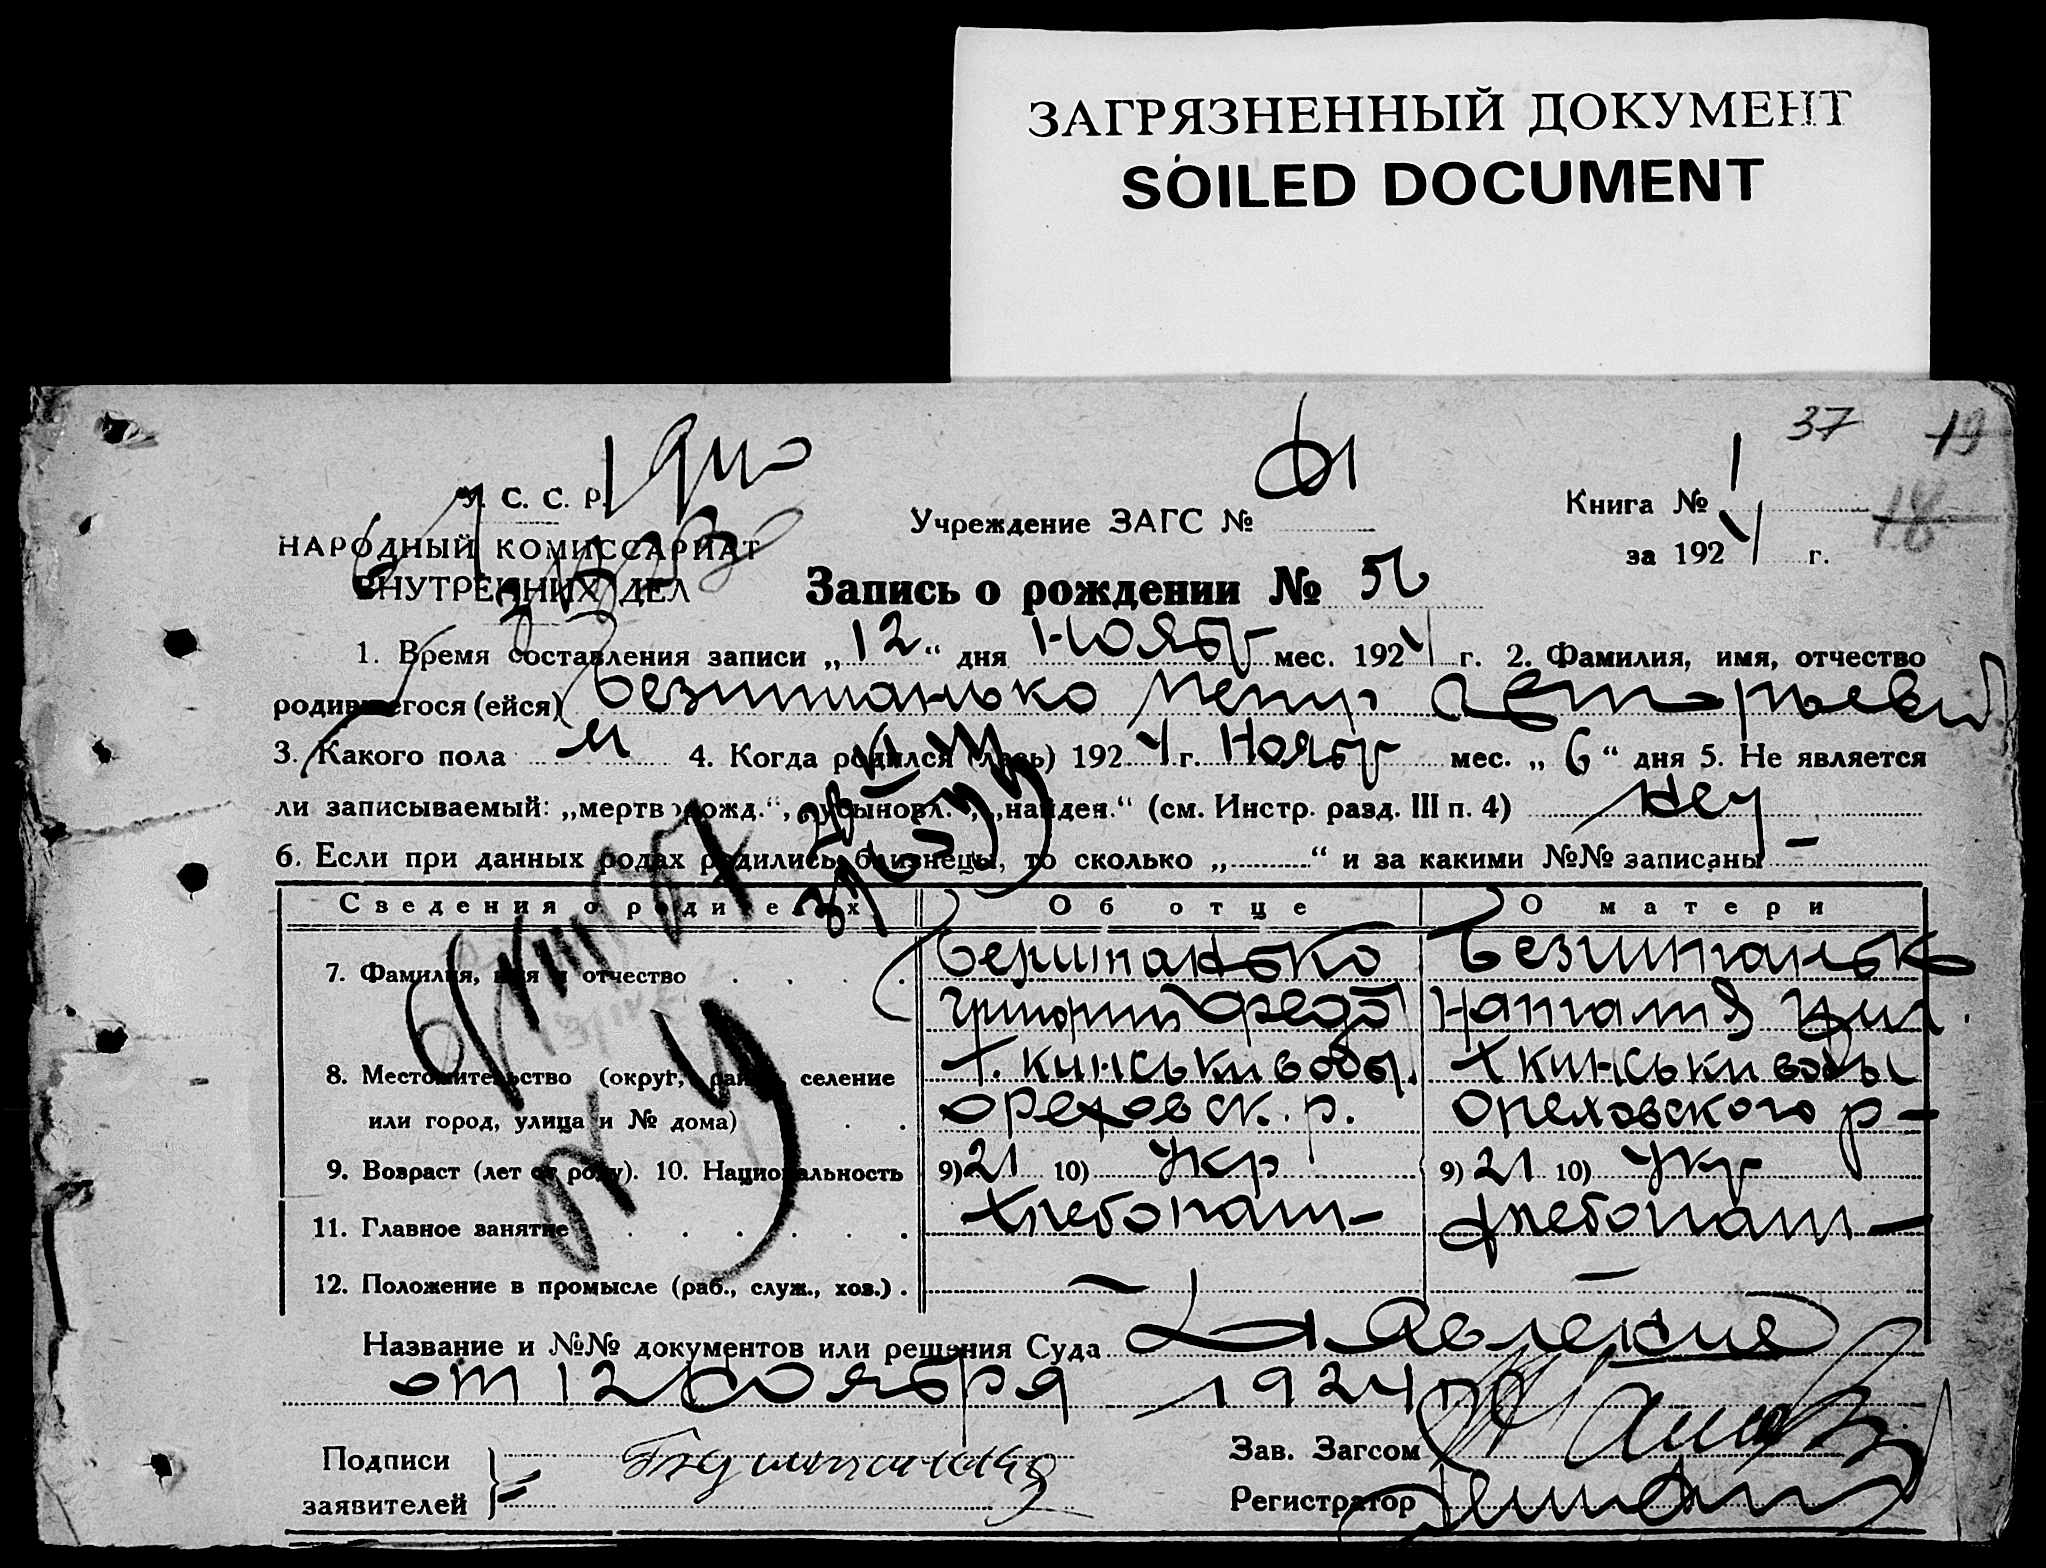 ЗАГРЯЗНЕННЫЙ ДОКУМЕНТ
SOILED DOCUMENT
37 19
18
У. С. С. Р.
НАРОДНЫЙ КОМИССАРИАТ
ВНУТРЕННИХ ДЕЛ
Учреждение ЗАГС №
Книга № 1
за 1924 г.
Запись о рождении № 56
1. Время составления записи „12“ дня Ноябр мес. 1924 г. 2. Фамилия, имя, отчество
родившегося (ейся) Безштанько Петр
3. Какого пола М 4. Когда родился (лась) 1924 г. Ноябр мес. „6“ дня 5. Не является
ли записываемый: „мертворожд.“, „усыновл.“, „найден.“ (см. Инстр. разд. III п. 4) Нет
6. Если при данных родах родились близнецы, то сколько „ “ и за какими №№ записаны —
Сведения о родителях Об отце О матери
7. Фамилия, имя и отчество Безштанько Безштанько
Григорий Федо Наталия
8. Местожительство (округ, район, селение х. Кинськиводы. х Кинськиводы
или город, улица и № дома) Ореховск. р. Ореховского р-
9. Возраст (лет от роду). 10. Национальность 9) 21 10) Укр 9) 21 10) Укр
11. Главное занятие Хлебопаш- Хлебопаш-
12. Положение в промысле (раб., служ., хоз.) — —
Название и №№ документов или решения Суда Заявление
от 12 Ноября 1924 г
Подписи
заявителей
Зав. Загсом
Регистратор